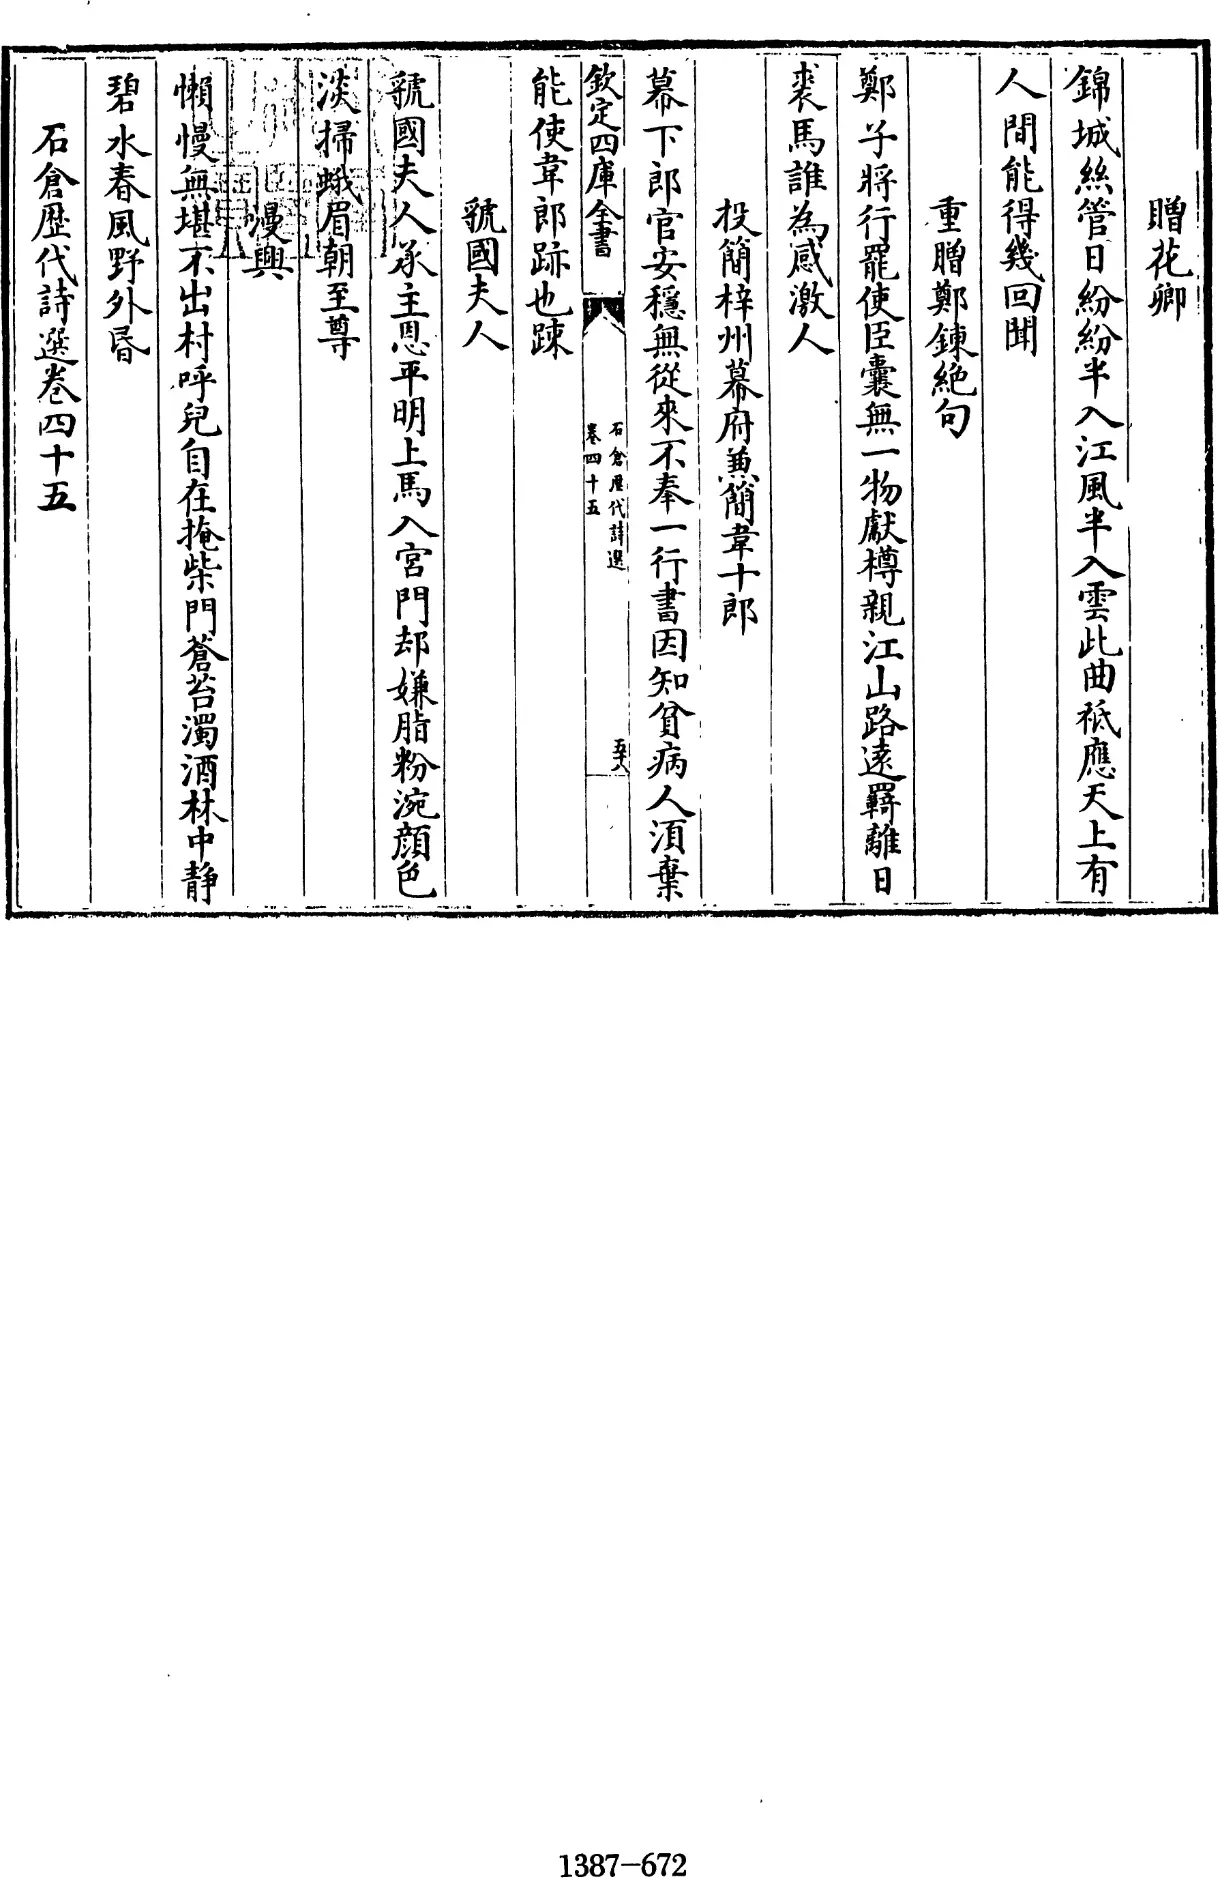 贈花卿
錦城絲管日紛紛半入江風半入雲此曲祗應天上有
人間能得幾回聞
重贈鄭鍊絶句
鄭子將行罷使臣囊無一物獻樽親江山路逺羇離日
裘馬誰為感激人
投簡梓州幕府兼簡韋十郎
幕下郎官安穩無從來不奉一行書因知貧病人湏棄
欽定四庫全書
石倉歷代詩選
卷四十五
五八
能使韋郎跡也踈
虢國夫人
虢國夫人承主恩平明上馬入宮門却嫌脂粉涴顔色
淡掃蛾眉朝至尊
漫興
懶慢無堪不出村呼兒自在掩柴門蒼苔濁酒林中静
碧水春風野外昏
石倉歴代詩選卷四十五
1387-672